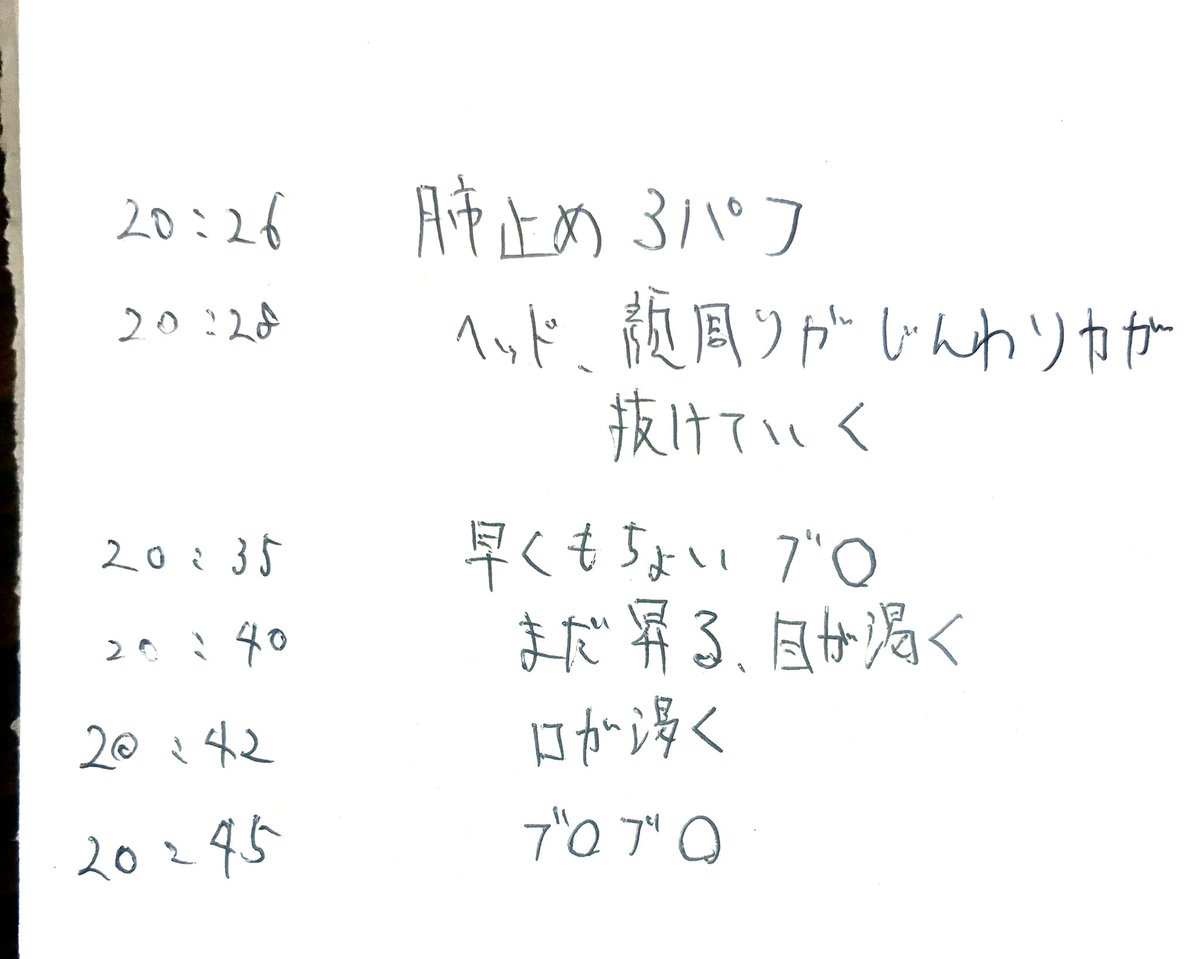 20:26 肺止め 3パフ
20:28 ヘッド、顔周りがじんわり力が
抜けていく
20:35 早くもちょいブロ
20:40 まだ昇る、目が渇く
20:42 口が渇く
20:45 ブロブロ